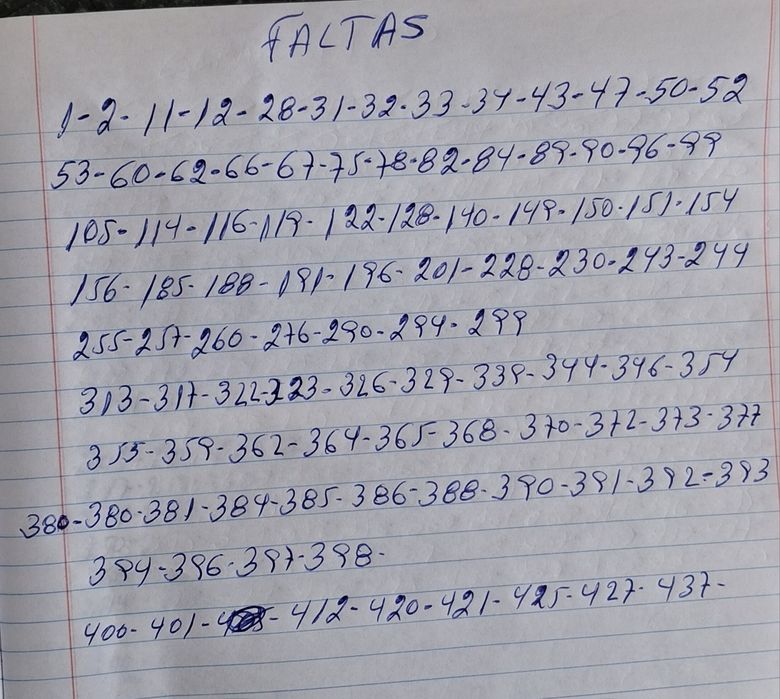 FALTAS
1-2-11-12-28-31-32-33-34-43-47-50-52
53-60-62-66-67-75-78-82-84-89-90-96-99
105-114-116-119-122-128-140-149-150-151-154
156-185-188-191-196-201-228-230-243-244
255-257-260-276-290-294-299
313-317-322-323-326-329-339-344-346-354
355-359-362-364-365-368-370-372-373-377
380-380-381-384-385-386-388-390-391-392-393
394-396-397-398-
400-401-412-420-421-425-427-437-